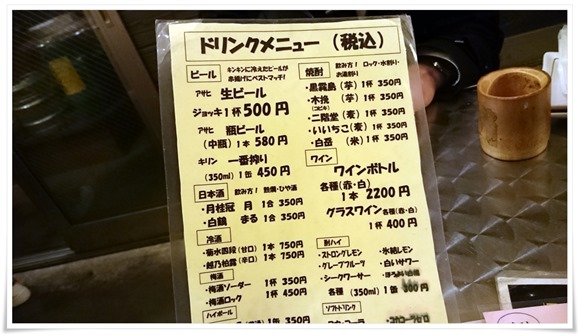 ドリンクメニュー（税込）
ビール
キンキンに冷えたビールが
串揚げにベストマッチ!
アサヒ 生ビール
ジョッキ1杯500円
アサヒ 瓶ビール
(中瓶) 1本 580円
キリン 一番搾り
(350ml) 1缶 450円
日本酒 飲み方! 熱燗・ひや酒
・月桂冠 月 1合 350円
・白鶴 まる 1合 350円
冷酒
・菊水四段(甘口) 1本 750円
・越乃柏露(辛口) 1本 750円
梅酒
・梅酒ソーダー 1杯 350円
・梅酒ロック 1杯 450円
ハイボール
焼酎
飲み方! ロック・水割り・
お湯割り
・黒霧島 (芋) 1杯 350円
・木挽 (芋) 1杯 350円
・二階堂 (麦) 1杯 350円
・いいちこ(麦) 1杯 350円
・白岳 (米) 1杯 350円
ワイン
ワインボトル
各種(赤・白)
1本 2200円
グラスワイン 各種(赤・白)
1杯 400円
酎ハイ
・ストロングレモン ・氷結レモン
・グレープフルーツ ・白いサワー
・シークワーサー ・ほろよい白桃
各種 (350ml) 1缶 300円
ソフトドリンク